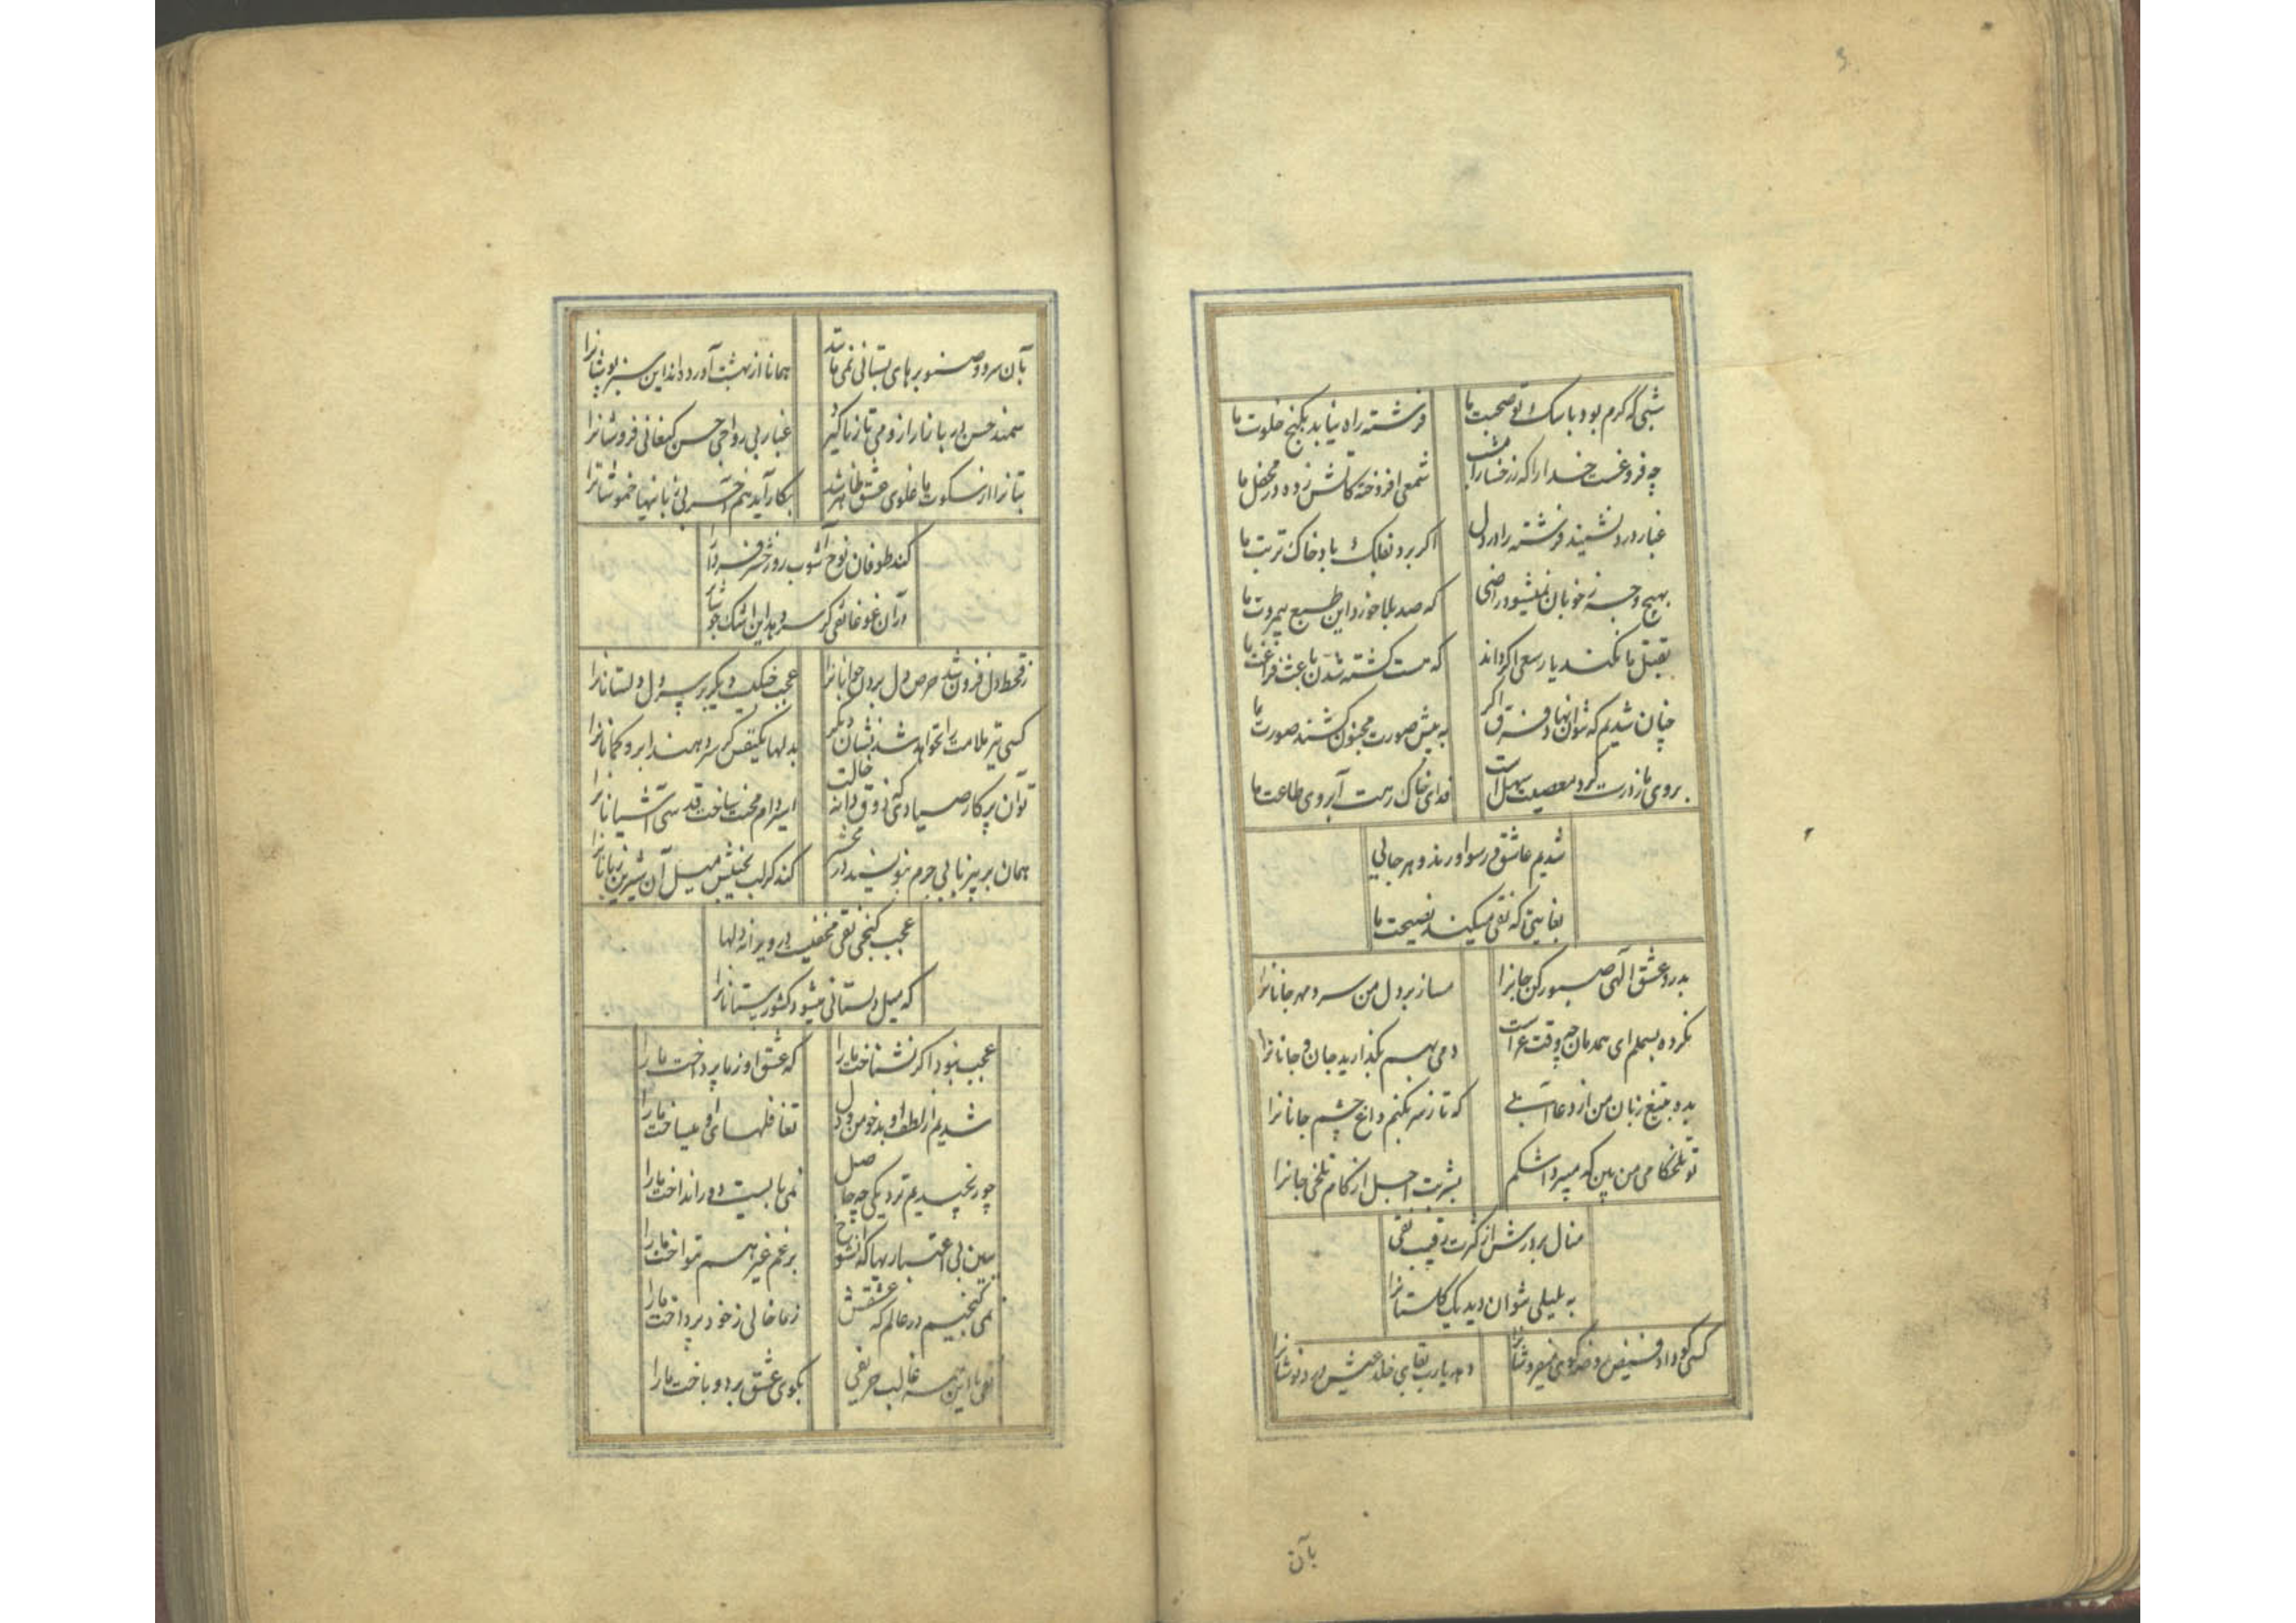 شبی که گرم بود با سگ تو صحبت ما
فرشته راه نیابد بکنج خلوت ما
چه فروغست خدا را که ز رخسار امشب
شمعی افروخته کاتش زده در محفل ما
غبار درد نشیند فرشته را در دل
اگر برد بفلک باد خاک تربت ما
بهیچ وجه ز خوبان نمیشود راضی
که صد بلا خورد این طبع بیمروت ما
بقتل ما نکند یار سعی اگر داند
که هست کشته شدن باعث فراغت ما
چنان شدیم که نتوان نهاد فرق اگر
به پیش صورت مجنون کشند صورت ما
بروی ما ز درت گرد معصیت سهل است
فدای خاک رهت آبروی طاعت ما
شدیم عاشق و رسوا و رند و هر جایی
بغایتی که نقی میکند نصیحت ما
بدرد عشق الهی صبور کن جانرا
مساز بر دل من سرد مهر جانانرا
نکرده بسملم ای همدمان چه وقت عزاست
دمی بهم بگذارید جان و جانانرا
بده بتیغ زبان من از دعا
که تا ز سر بکنم داغ چشم جانانرا
تو تلخکامی من بین که میبرد اشکم
بشربت اجل از کام تلخی جانرا
منال بر درش از کثرت رقیب نقی
به بلبلی نتوان دید یک گلستانرا
کسی کو داد فیض
دهد یارب بقای خلد عیش
بآن
بآن سرو و صنوبرهای بستانی نمی‌ماند
همانا از بهشت آورده‌اند این سبزپوشانرا
سمند حسن به بازار از ومی تازناگیر
غبار بی رواجی حسن کنعانی فروشانرا
بتانرا از سکوت ما غلوی عشق ظاهر شد
بکار آید هم آخر بی زبانیها خموشانرا
کند طوفان نوح آشوب روز حشر فردا را
در آن غوغا نقی گر سر دهد این اشک جوشانرا
ز قحط دل فزون شد حرص دل بردن جوانانرا
عجب جنگیست با یکدیگر بر سر دل دلستانانرا
کسی تیر ملامت را نخواهد شد نشان دیگر
بدلها یکنفس گر سر دهند ابرو کمانانرا
توان پرکار صیادی که ذوق دانه خالت
اسیر دام محنت ساخت قدسی آشیانانرا
همان بر بیزبانی جرم بنویسند در محشر
کند گر لب بجنبش میل آن شیرین زبانانرا
عجب گنجی نقی مخفیست در ویرانه دلها
که میل دلستانی میشود کشورستانانرا
عجب نبود اگر نشناخت ما را
که عشق او ز ما پرداخت ما را
شدیم از لطف او بدخو من و دل
تغافلهای او میساخت ما را
چو رنجیدیم نزدیکی چه حاصل
نمی‌بایست دور انداخت ما را
ببین بی اعتباریها که آن شوخ
برغم غیر هم ننواخت ما را
نمی‌گنجیم در عالم که عشقش
ز ما خالی ز خود پرداخت ما را
نقی با این همه غالب حریفی
بکوی عشق برد و باخت ما را